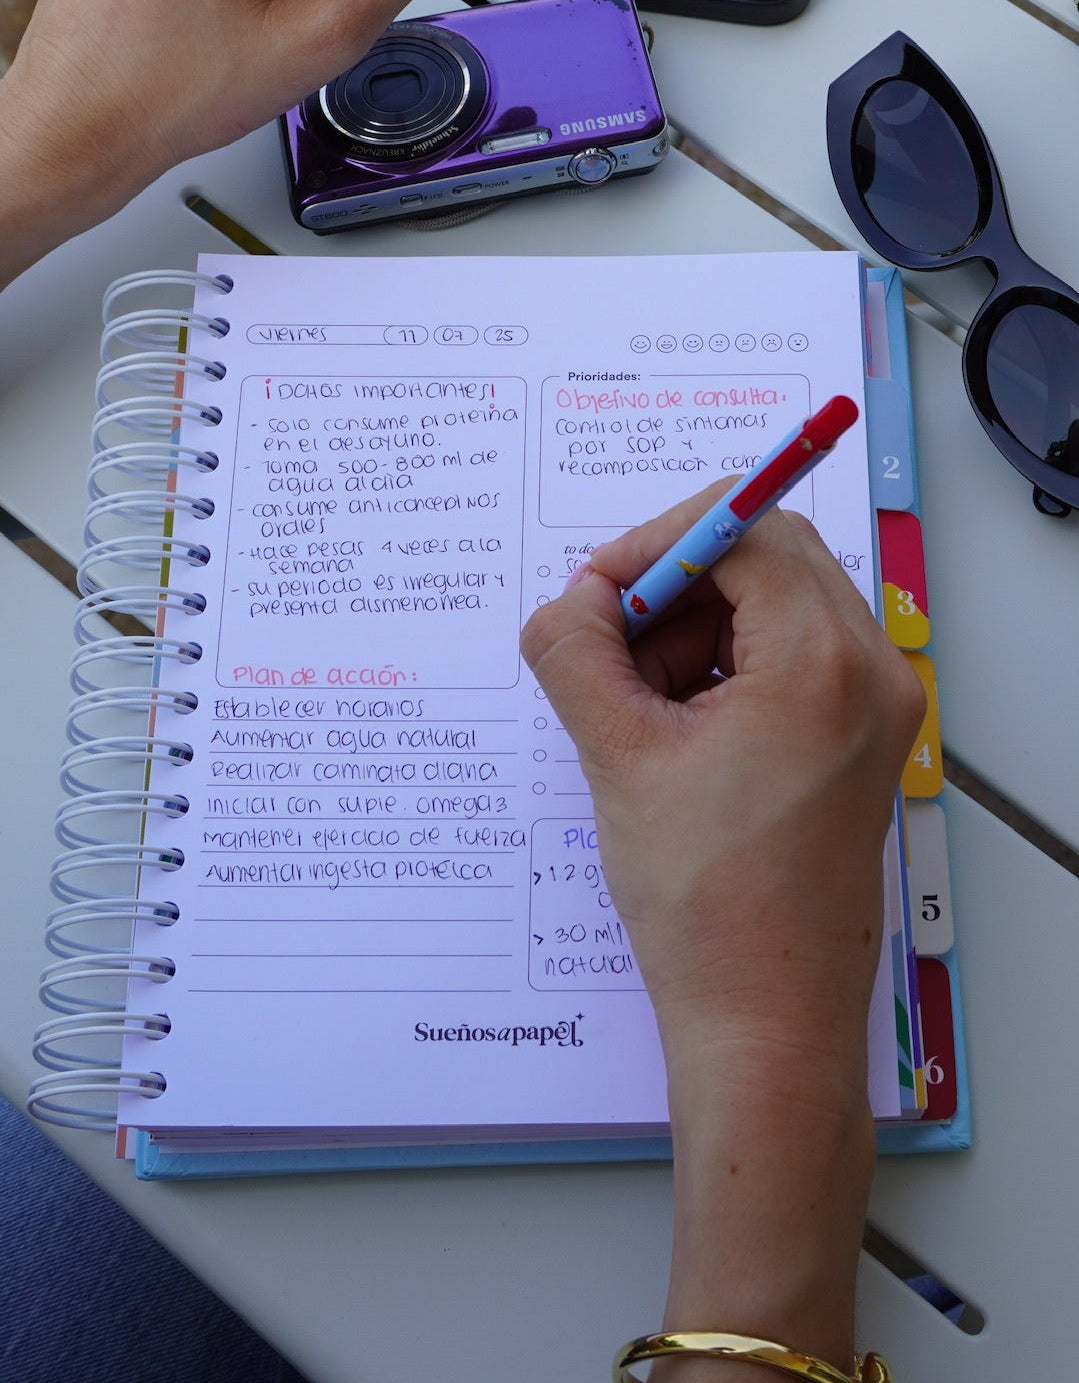 Schneider
KREUZNACH
SAMSUNG
ST600
POWER
viernes 11 07 25
¡Datos importantes!
- Solo consume proteina
en el desayuno.
- Toma 500-800 ml de
agua al dia
- consume anticonceptivos
orales
- Hace pesas 4 veces a la
semana
- su periodo es irregular y
presenta dismenorrea.
Plan de acción:
Establecer horarios
Aumentar agua natural
Realizar caminata diaria
Iniciar con suple. omega 3
Mantener ejercicio de fuerza
Aumentar ingesta protéica
Prioridades:
Objetivo de consulta:
control de sintomas
por SOP y
recomposicion
to do
> 1.2 g
> 30 ml
natural
Sueñosapapel
2
3
4
5
6